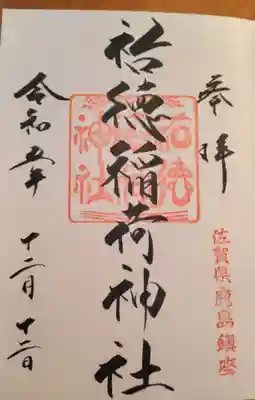 奉拝
佐賀県鹿島鎮座
祐徳稲荷神社
祐徳
神社
令和五年
十二月
十二日